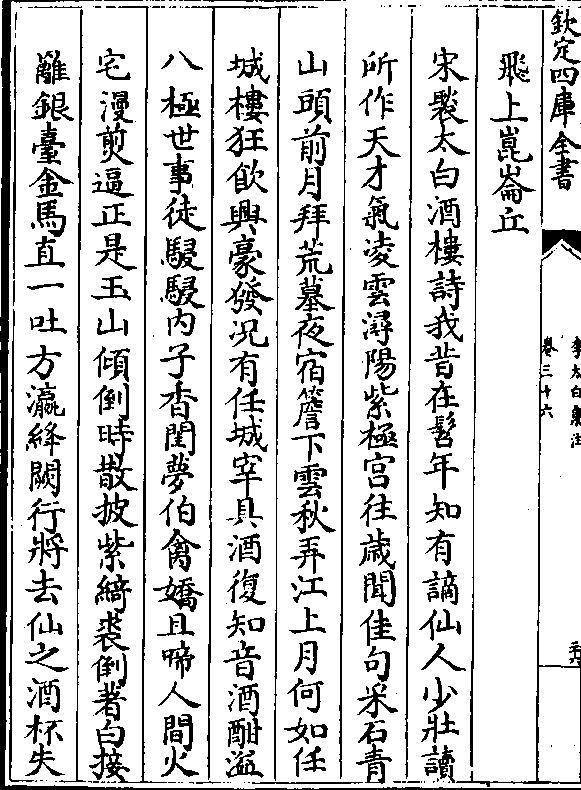 欽定四庫全書
李太白集注
卷三十六
飛上崑崙丘
宋褧太白酒樓詩我昔在髫年知有謫仙人少壯讀
所作天才氣凌雲潯陽紫極宮往歲聞佳句采石青
山頭前月拜荒墓夜宿簷下雲秋弄江上月何如任
城樓狂飲興豪發况有任城宰具酒復知音酒酣溢
八極世事徒駸駸内子杳閨夢伯禽嬌且啼人間火
宅漫煎逼正是玉山傾倒時散披紫綺裘倒著白接
䍦銀臺金馬直一吐方瀛絳闕行將去仙之酒杯失